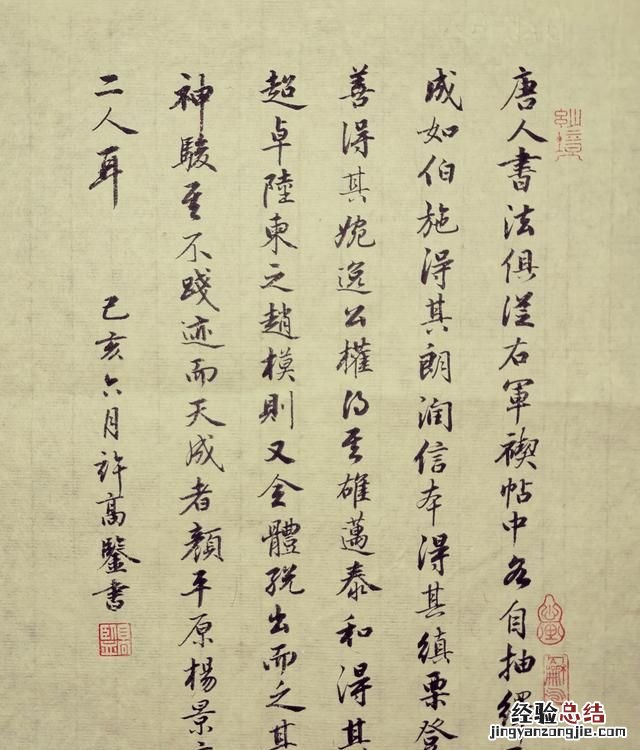 唐人書法俱從右軍禊帖中各自抽繹
成如伯施得其朗潤信本得其縝栗登
善得其婉逸公權得其雄邁泰和得其
超卓陸柬之趙模則又全體脱出而乏其
神駿其不踐迹而天成者顏平原楊景
二人耳
己亥六月許高鑒書
经验总结
jingyanzongjie.com